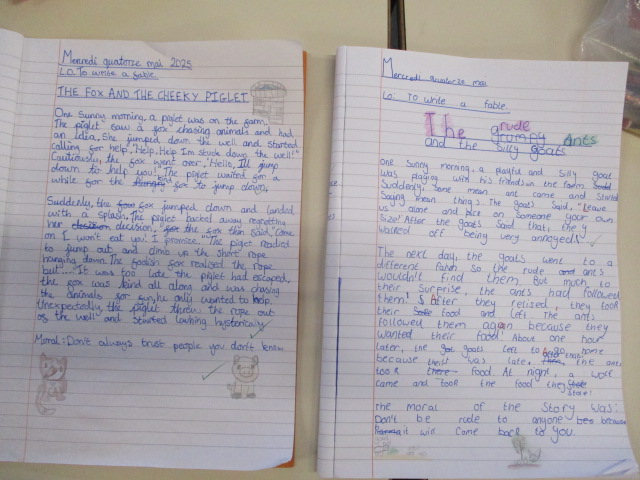 Mercredi quatorze mai 2025
L.O. To write a fable.
THE FOX AND THE CHEEKY PIGLET
One sunny morning, a piglet was on the farm.
The piglet saw a fox chasing animals and had
an idea. She jumped down the well and started
calling for help, "Help, Help I'm stuck down the well!"
Cautiously, the fox went over, "Hello, I'll jump
down to help you." The piglet waited for a
while for the hungry fox to jump down.
Suddenly, the fox jumped down and landed
with a splash. The piglet backed away regretting
her decision, the fox then said, "Come
on I won't eat you! I promise." The piglet needed
to jump out and climb up the short rope
hanging down. The foolish fox realised the rope
but"..." It was too late the piglet had escaped,
the fox was kind all along and was chasing
the animals for fun, he only wanted to help.
Unexpectedly the piglet threw the rope out
of the well and started laughing hysterically.
Moral: Don't always trust people you don't know.
Mercredi quatorze mai
Lo: To write a fable.
The rude grumpy Ants
and the silly goats
One sunny morning, a playful and silly goat
was playing with his friends on the farm.
Suddenly, some mean ant came and started
saying mean things. The goats said, "Leave
us alone and pick on someone your own
size!" After the goats said that, they
walked off being very annoyed.
The next day, the goats went to a
different farm so the rude ants
wouldn't find them. But much to
their surprise, the ants had followed
them! After they relised, they took
their food and left. The ants
followed them again because they
wanted their food. About one hour
later, the goats left to go home
because it was late, the ants
took food. At night, a wolf
came and took the food they
store!
The moral of the story was:
Don't be rude to anyone because
it will come back to you.